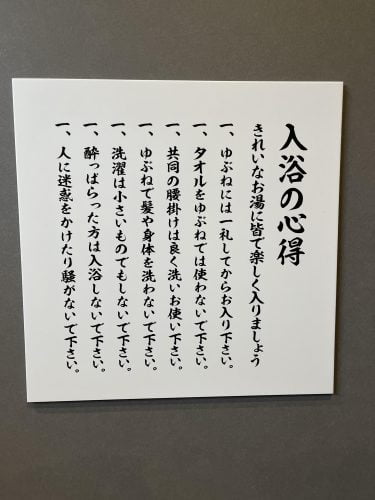 入浴の心得
きれいなお湯に皆で楽しく入りましょう
一、ゆぶねには一礼してからお入り下さい。
一、タオルをゆぶねでは使わないで下さい。
一、共同の腰掛けは良く洗いお使い下さい。
一、ゆぶねで髪や身体を洗わないで下さい。
一、洗濯は小さいものでもしないで下さい。
一、酔っぱらった方は入浴しないで下さい。
一、人に迷惑をかけたり騒がないで下さい。